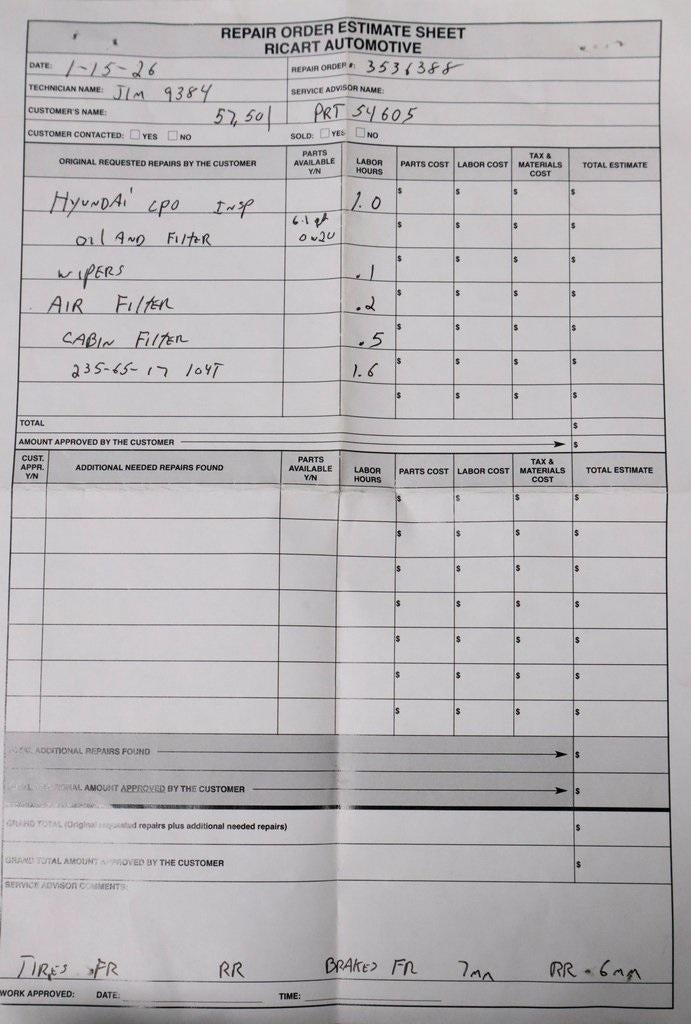 REPAIR ORDER ESTIMATE SHEET
RICART AUTOMOTIVE
DATE: 1-15-26 REPAIR ORDER #: 3536388
TECHNICIAN NAME: JIM 9384 SERVICE ADVISOR NAME:
CUSTOMER'S NAME: 57,501 PRT 54605
CUSTOMER CONTACTED: YES NO SOLD: YES NO
ORIGINAL REQUESTED REPAIRS BY THE CUSTOMER PARTS AVAILABLE Y/N LABOR HOURS PARTS COST LABOR COST TAX & MATERIALS COST TOTAL ESTIMATE
HYUNDAI CPO INSP 1.0 $ $ $ $
OIL AND FILTER 6.1 qt 0w20 $ $ $ $
WIPERS .1 $ $ $ $
AIR FILTER .2 $ $ $ $
CABIN FILTER .5 $ $ $ $
235-65-17 104T 1.6 $ $ $ $
$ $ $ $
TOTAL $
AMOUNT APPROVED BY THE CUSTOMER $
CUST. APPR. Y/N ADDITIONAL NEEDED REPAIRS FOUND PARTS AVAILABLE Y/N LABOR HOURS PARTS COST LABOR COST TAX & MATERIALS COST TOTAL ESTIMATE
$ $ $ $
$ $ $ $
$ $ $ $
$ $ $ $
$ $ $ $
$ $ $ $
$ $ $ $
ADDITIONAL REPAIRS FOUND $
AMOUNT APPROVED BY THE CUSTOMER $
GRAND TOTAL (Original requested repairs plus additional needed repairs) $
GRAND TOTAL AMOUNT APPROVED BY THE CUSTOMER $
SERVICE ADVISOR COMMENTS:
TIRES FR RR BRAKES FR 7mm RR - 6mm
WORK APPROVED: DATE: TIME: